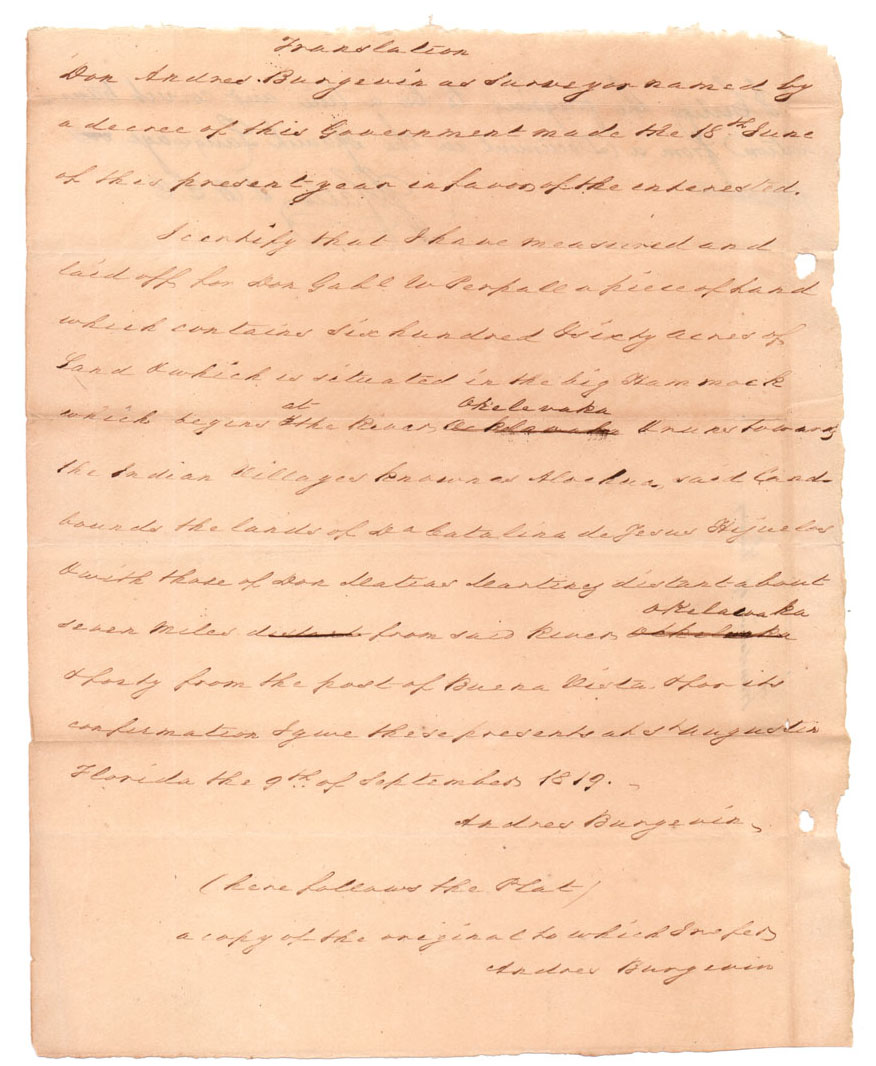 Translation
Don Andres Burgevin as Surveyor named by
a decree of this Government made the 18th June
of this present year in favor of the interested.
I certify that I have measured and
laid off for Don Gabl. W Perpall a piece of Land
which contains Six hundred & sixty acres of
Land & which is situated in the big Hammock
at Okelevaka
which begins the River & runs towards
the Indian Villages known as Alochua, said Land
bounds the lands of Da Catalina de Jesus Hijuelos
& with those of Don Matias Martiney distant about
Okelawaka
seven Miles distant from said River
& forty from the post of Buena Vista & for its
confirmation I give these presents at St Augustin
Florida the 9th of September 1819.
Andres Burgevin
(here follows the Plat)
a copy of the original to which I refer
Andres Burgevin